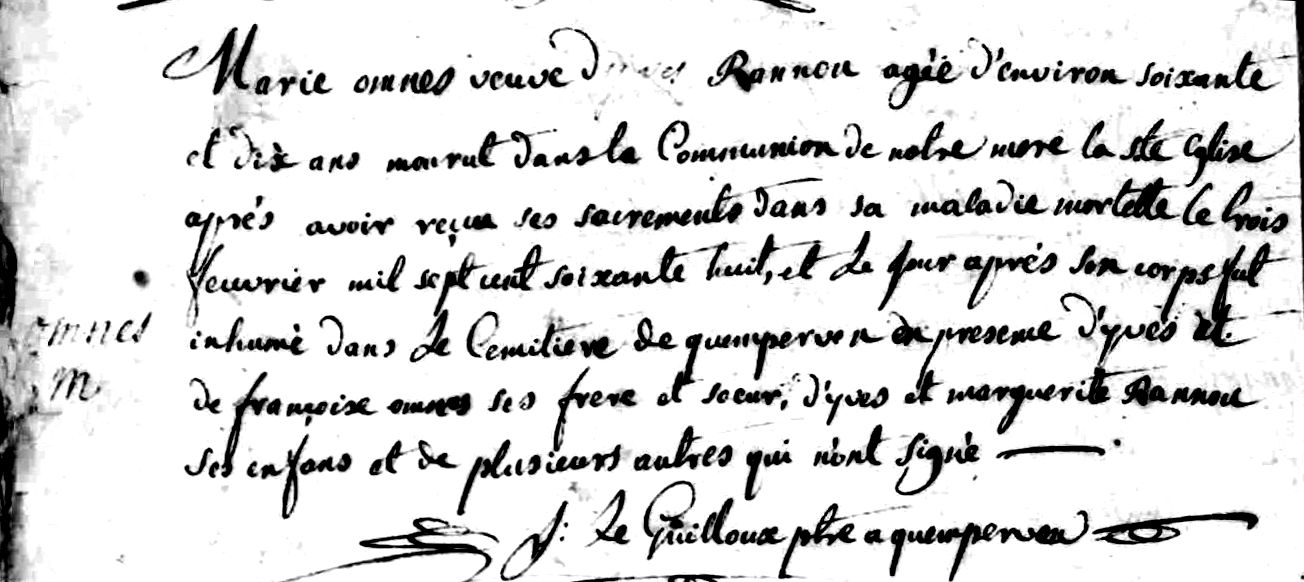 Marie omnes veuve Rannou agée d'environ soixante
et dix ans mourut dans la Communion de notre mere la ste Eglise
aprés avoir reçue ses sacrements dans sa maladie mortelle le trois
feuvrier mil sept cent soixante huit, et le jour aprés son corps fut
omnes inhumé dans Le Cemitiere de quemperven en presence d'yves et
M de françoise omnes ses frere et soeur, d'yves et marguerite Rannou
ses enfans et de plusieurs autres qui n'ont signé
J: Le Guilloux ptre a quemperven